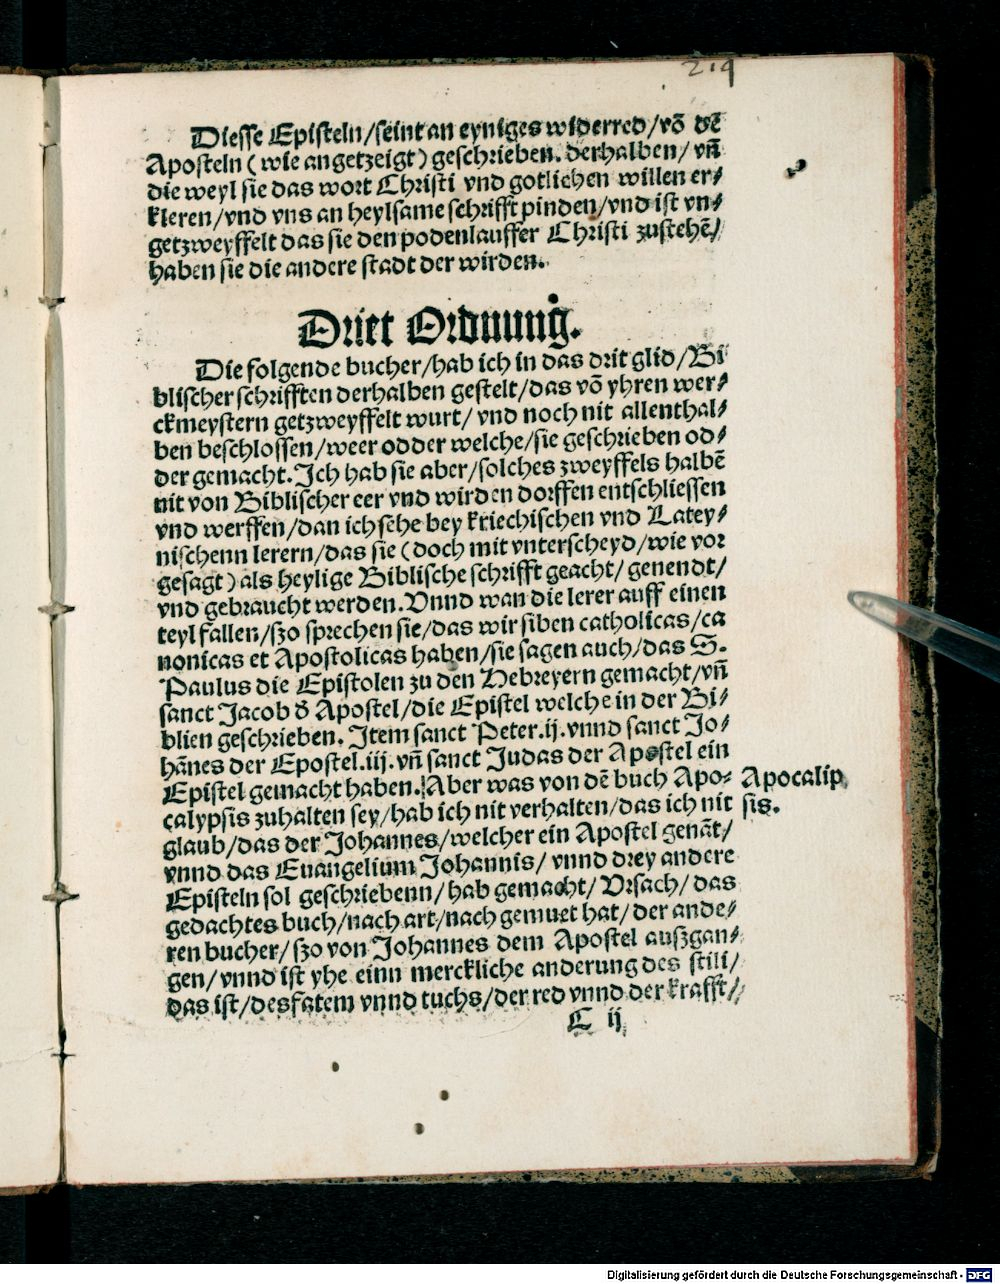 214
Diesse Episteln/seint an eyniges widerred/vō dē
Aposteln (wie angetzeigt) geschrieben. derhalben/ vn̄
die weyl sie das wort Christi vnd gotlichen willen er⸗
kleren/vnd vns an heylsame schrifft pinden/vnd ist vn⸗
getzweyffelt das sie den podenlauffer Christi zustehē/
haben sie die andere stadt der wirden.
Driet Ordnung.
Die folgende bucher/hab ich in das drit glid/Bi
blischer schrifften derhalben gestelt/das vō yhren wer⸗
ckmeystern getzweyffelt wurt/ vnd noch nit allenthal⸗
ben beschlossen/weer odder welche/sie geschrieben od⸗
der gemacht. Ich hab sie aber/solches zweyffels halbē
nit von Biblischer eer vnd wirden dorffen entschliessen
vnd werffen/dan ich sehe bey kriechischen vnd Latey⸗
nischenn lerern/das sie (doch mit vnterscheyd/wie vor
gesagt) als heylige Biblische schrifft geacht/ genendt/
vnd gebraucht werden. Vnnd wan die lerer auff einen
teyl fallen/szo sprechen sie/das wir siben catholicas/ca
nonicas et Apostolicas haben/sie sagen auch/das S.
Paulus die Epistolen zu den Hebreyern gemacht/vn̄
sanct Jacob ð Apostel/die Epistel welche in der Bi⸗
blien geschrieben. Item sanct Peter.ij.vnnd sanct Jo⸗
hānes der Epostel.iij.vn̄ sanct Judas der Apostel ein
Epistel gemacht haben. Aber was von dē buch Apo⸗
calypsis zuhalten sey/hab ich nit verhalten/das ich nit
glaub/das der Johannes/welcher ein Apostel genāt/
vnnd das Euangelium Johannis/ vnnd drey andere
Episteln sol geschriebenn/hab gemacht/ Vrsach/ das
gedachtes buch/nach art/nach gemuet hat/ der ande⸗
ren bucher/szo von Johannes dem Apostel auszgan⸗
gen/ vnnd ist yhe einn merckliche anderung des stili/
das ist/desfatem vnnd tuchs/der red vnnd der krafft/
C ij
Apocalip
sis.
Digitalisierung gefördert durch die Deutsche Forschungsgemeinschaft - DFG